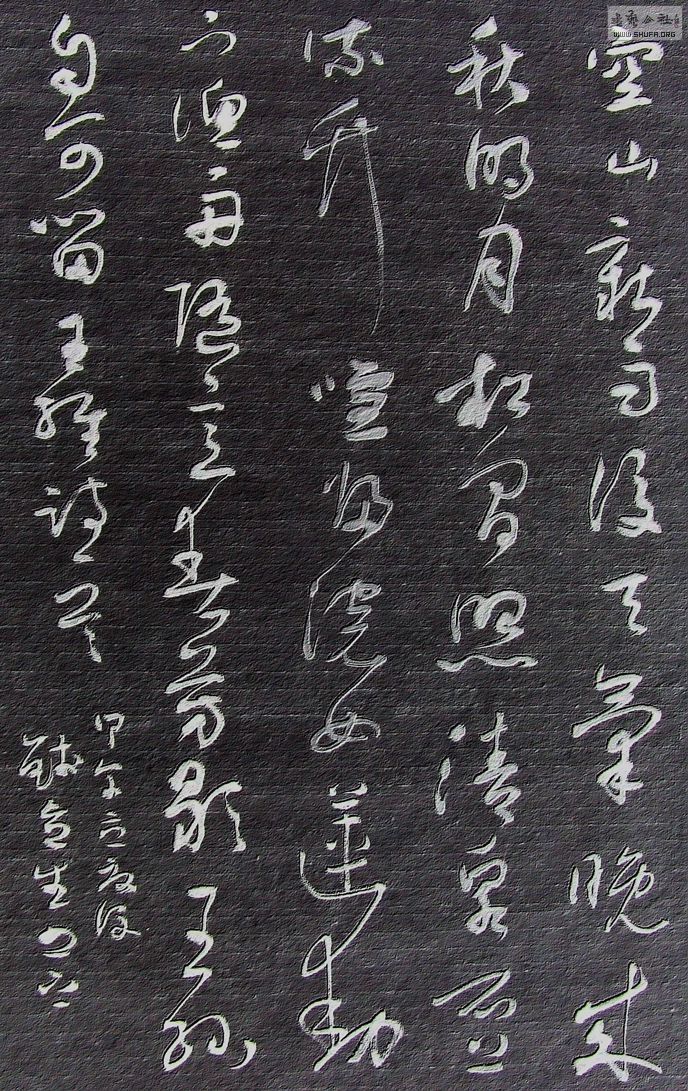 空山新雨後天氣晚来
秋明月松間照清泉石上
流竹喧歸浣女蓮動
下漁舟随意春芳歇王孫
自可留王維詩一首
甲午立夏後
WWW.SHUFA.ORG